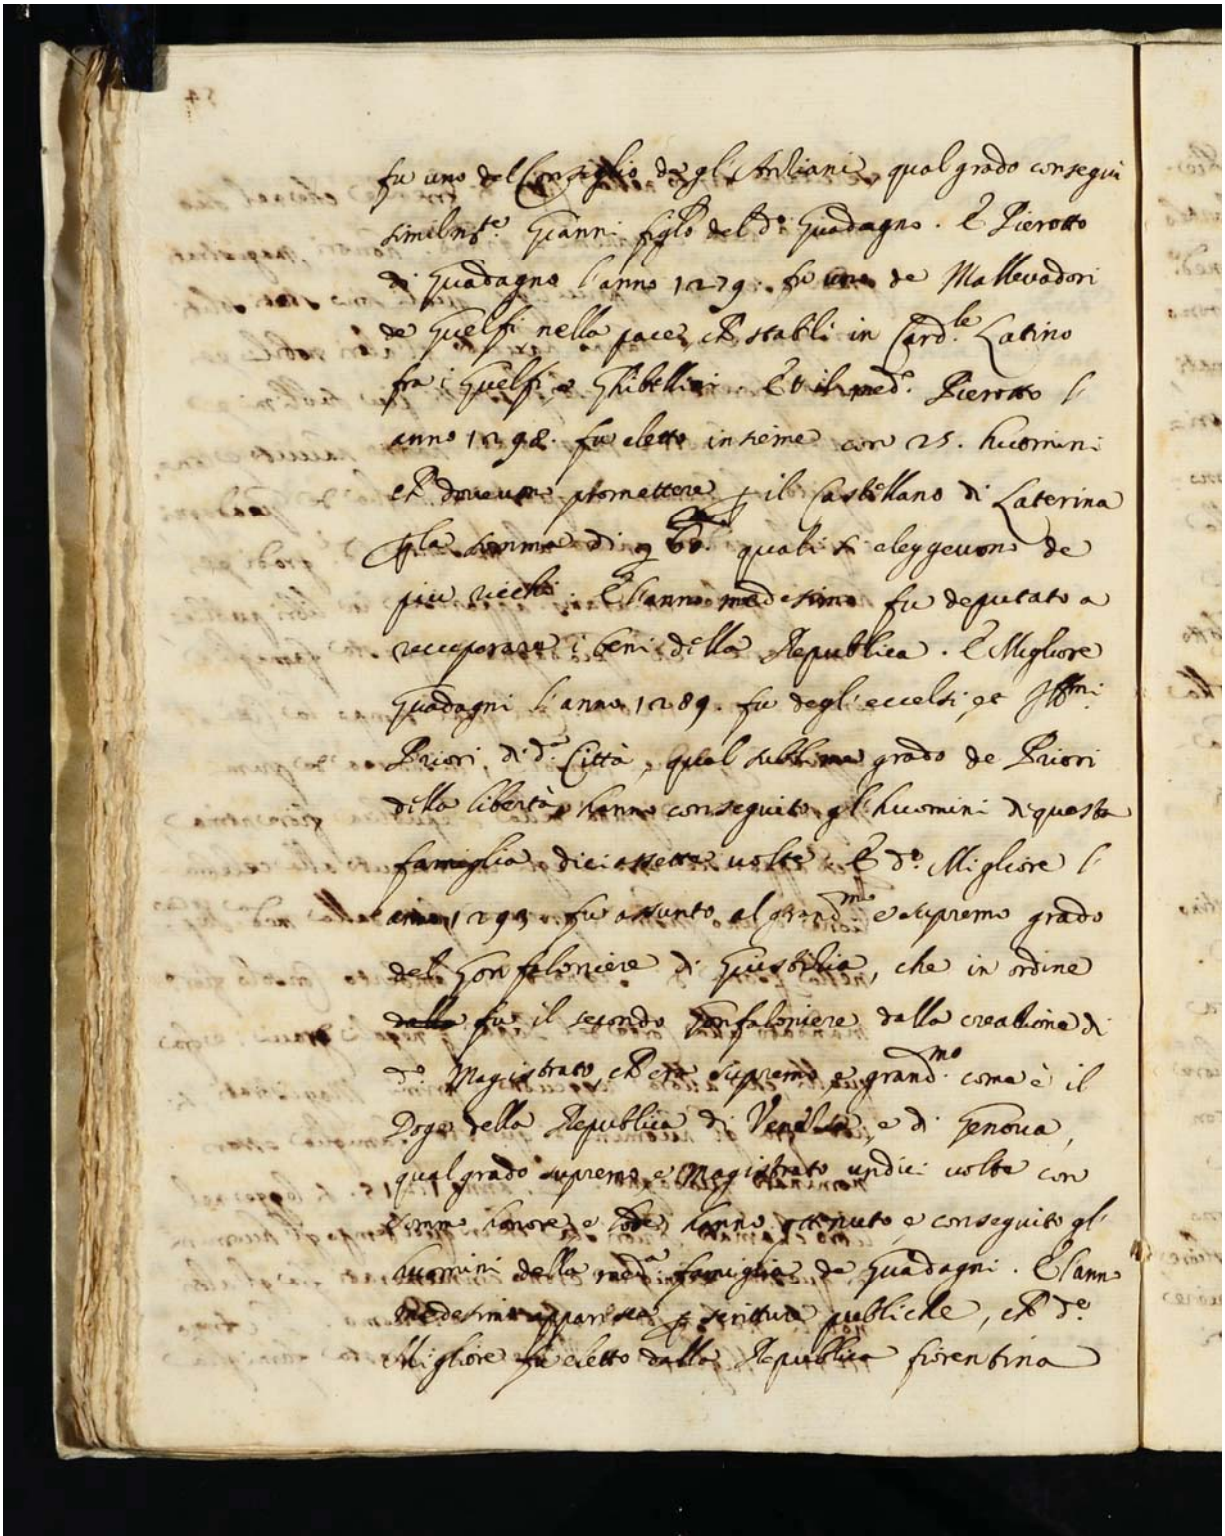 fu uno del Consiglio degl'Anziani, qual grado consegui
similmte. Gianni figlo del do. Guadagno. E Pierotto
di Guadagno l'anno 1279. fu uno de Mallevadori
de Guelfi nella pace, ch stabli in Cardle. Latino
fra i Guelfi, e Ghibellini. Et il medo. Pierotto l'
anno 1298. fu eletto insieme con 25. huomini
ch doveuon promettere p il Castellano di Laterina
p la somma di quali si eleggevono de
piu ricchi. E l'anno medesimo fu deputato a
recuperare i beni della Republica. E Migliore
Guadagni l'anno 1289. fu degl'eccelsi, et Illmi.
Priori, di da. Città, qual sublime grado de Priori
della libertà, hanno conseguito gl'huomini di questa
famiglia diciassette uolte. E do. Migliore l'
anno 1293 fu assunto al grandmo. e supremo grado
del Gonfaloniere di Giustitia, che in ordine
dalla fu il secondo Gonfaloniere dalla creatione di
do. Magistrato, ch era supremo, e grandmo. come è il
Doge della Republica di Venetia, e di Genoua,
qual grado supremo, e Magistrato undici uolte con
sommo honore, e lode, hanno ottenuto, e conseguito gl'
huomini della meda. famiglia de Guadagni. E l'anno
medesimo apparisce p scritture publiche, ch do.
Migliore fu eletto dalla Republica fiorentina